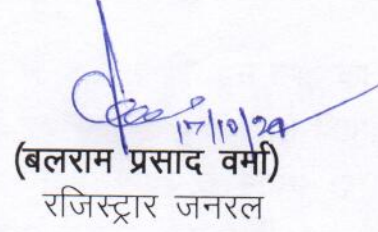 17/10/24
(बलराम प्रसाद वर्मा)
रजिस्ट्रार जनरल